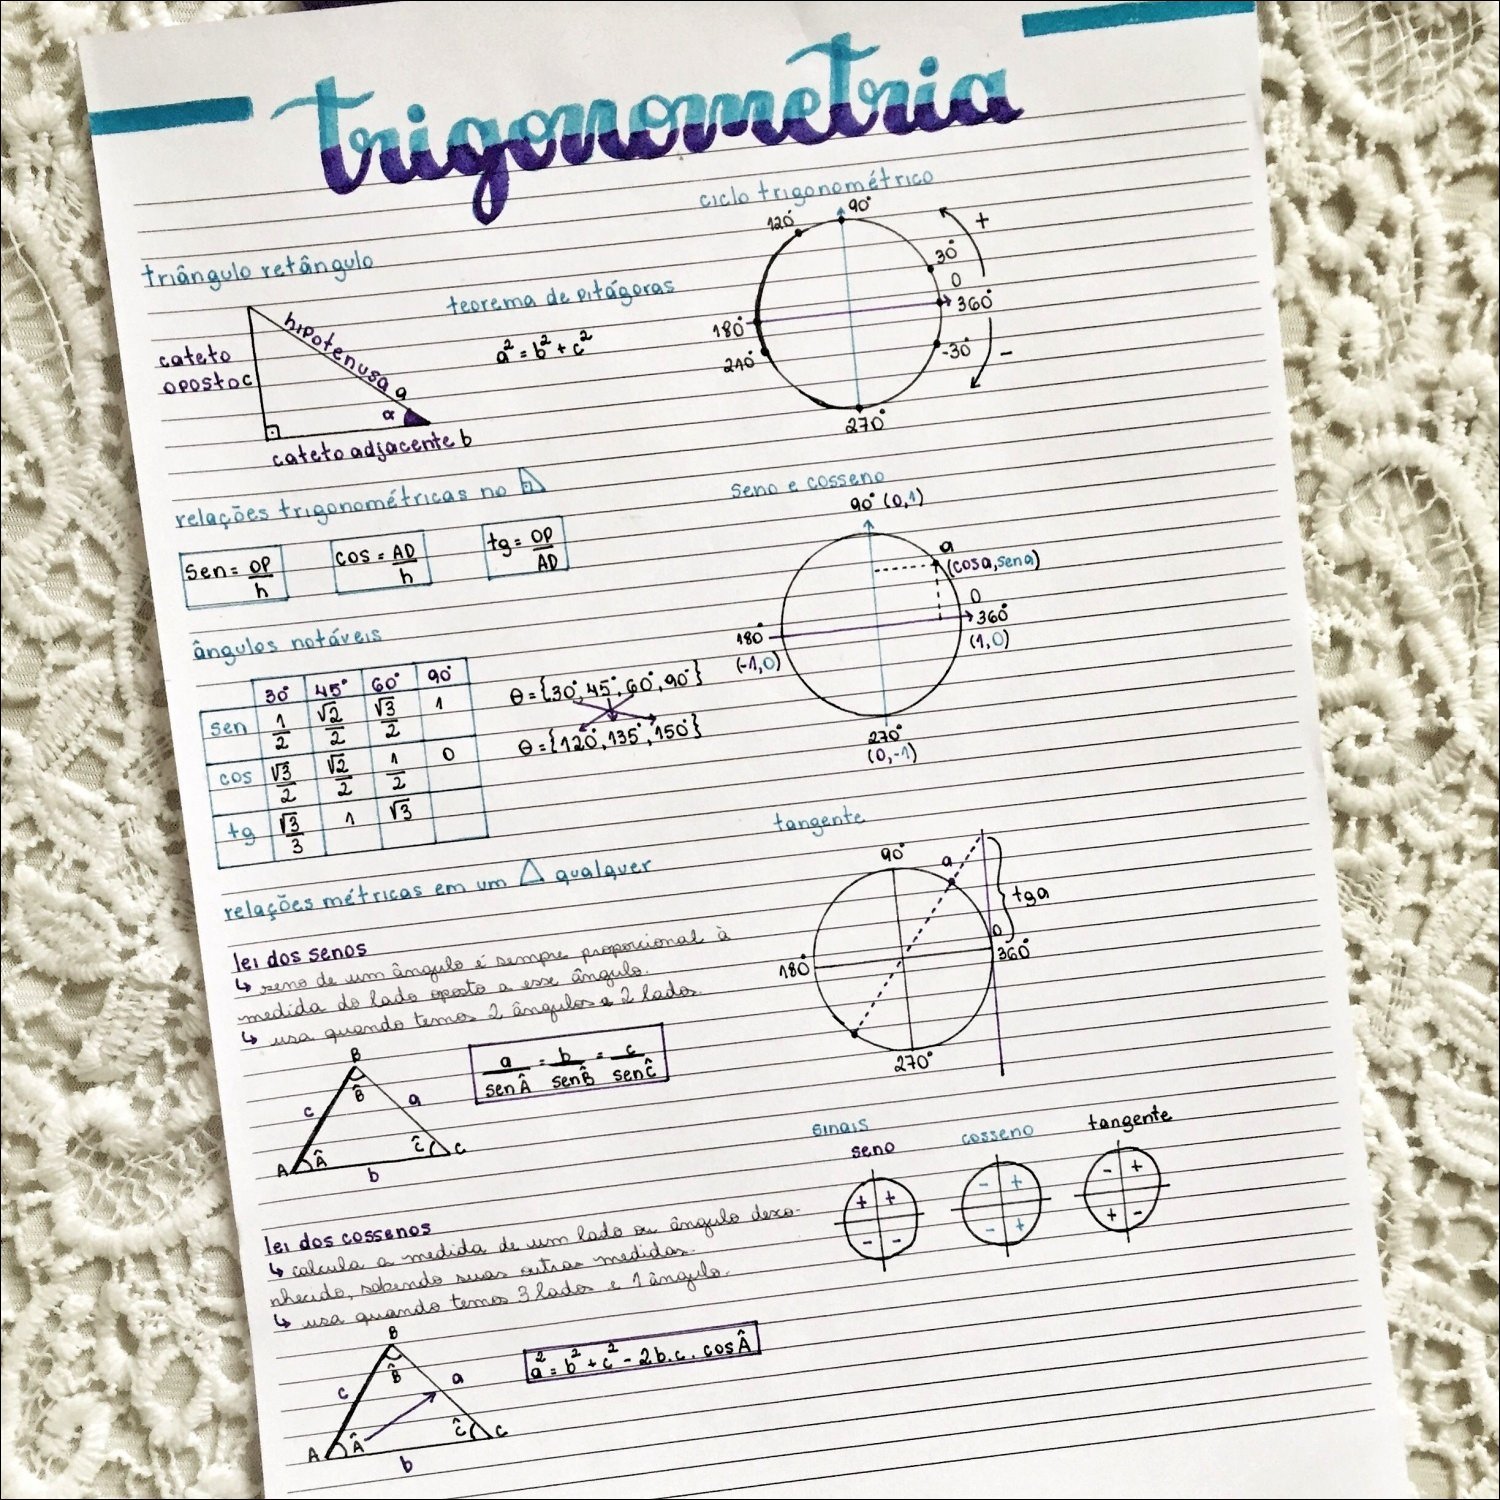 trigonometria
triângulo retângulo
hipotenusa a
cateto
oposto c
α
cateto adjacente b
teorema de pitágoras
a² = b² + c²
ciclo trigonométrico
90°
120°
30°
+
0
360°
180°
210°
-30°
-
270°
relações trigonométricas no
sen = OP/h
cos = AD/h
tg = OP/AD
seno e cosseno
90° (0,1)
a
(cosa, sena)
0
360°
(1,0)
180°
(-1,0)
270°
(0,-1)
ângulos notáveis
30° 45° 60° 90°
sen 1/2 √2/2 √3/2 1
cos √3/2 √2/2 1/2 0
tg √3/3 1 √3
θ = {30°, 45°, 60°, 90°}
θ = {120°, 135°, 150°}
tangente
90°
a
tga
0
360°
180°
270°
relações métricas em um △ qualquer
lei dos senos
↳ seno de um ângulo é sempre proporcional à
medida do lado oposto a esse ângulo.
↳ usa quando temos 2 ângulos e 2 lados.
a/senÂ = b/senB̂ = c/senĈ
B
B̂
c
a
A
Â
Ĉ
C
b
sinais
seno
+ +
- -
cosseno
- +
- +
tangente
- +
+ -
lei dos cossenos
↳ calcula a medida de um lado ou ângulo desco-
nhecido, sabendo suas outras medidas.
↳ usa quando temos 3 lados e 1 ângulo.
a² = b² + c² - 2b.c. cosÂ
B
B̂
c
a
A
Â
Ĉ
C
b